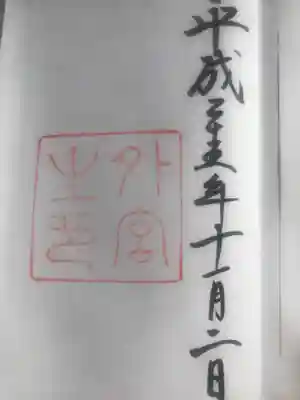 平成二十五年十一月二日
外宮之印